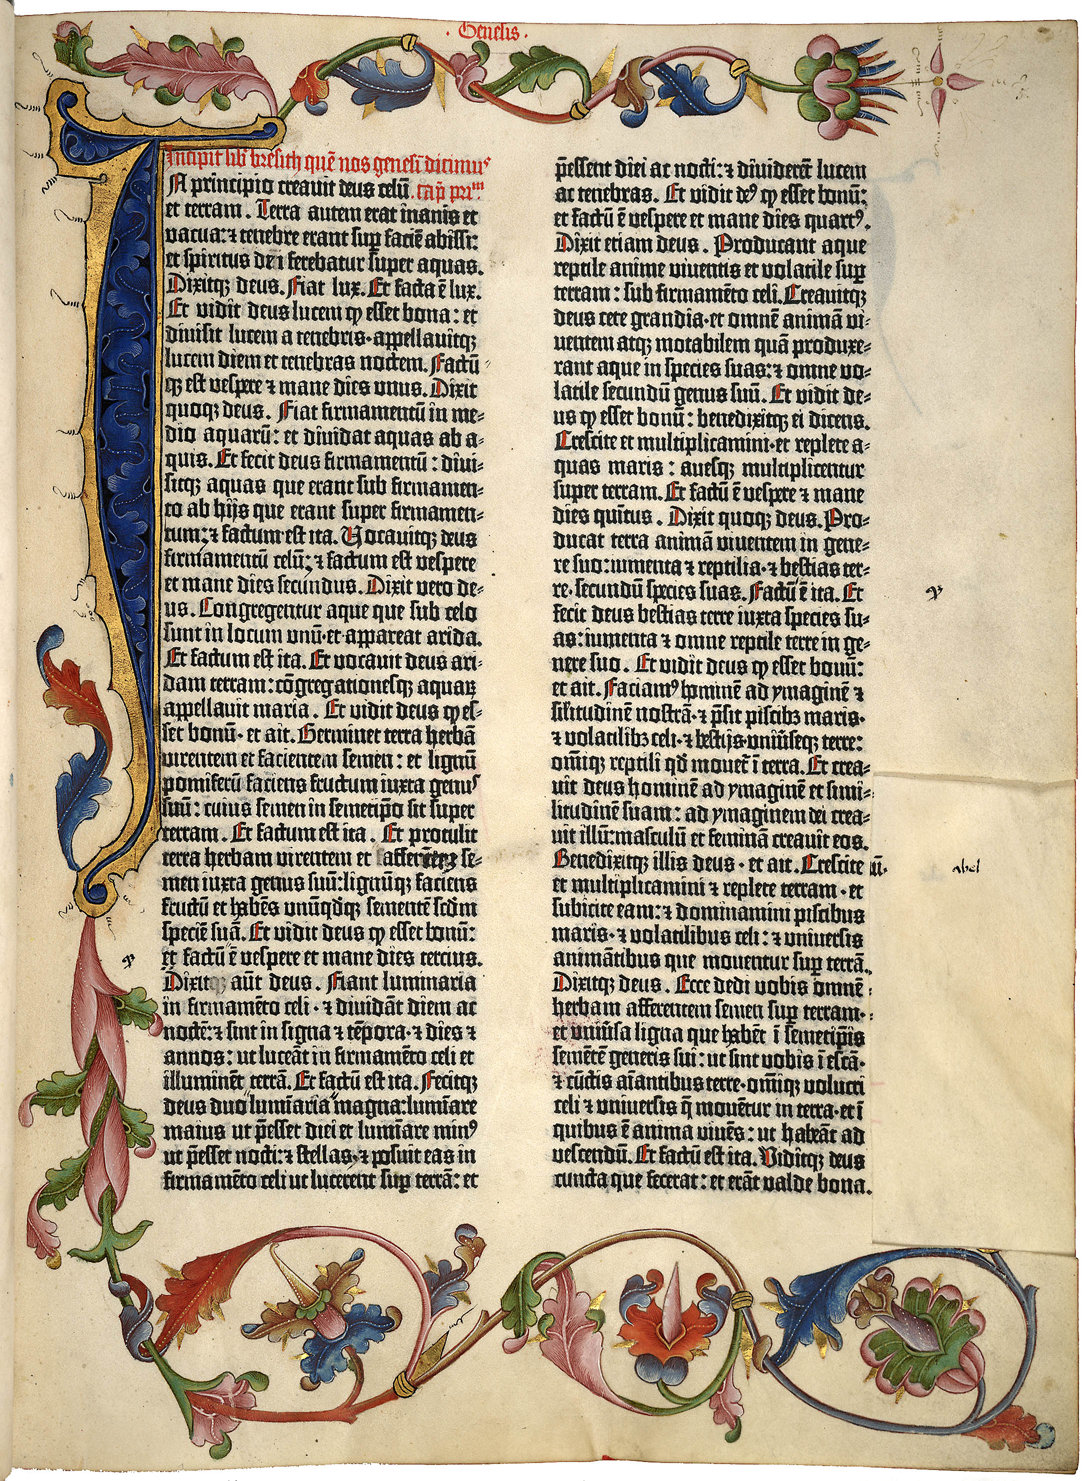 · Genesis ·
Incipit lib̄ bresith quē nos genesī dicimꝰ
In principio creauit deus celū cap̄ prīm
et terram. Terra autem erat inanis et
vacua: ⁊ tenebre erant suꝑ faciē abissi:
et spiritus dn̄i ferebatur super aquas.
Dixitqꝫ deus. Fiat lux. Et facta ē lux.
Et vidit deus lucem ꝙ esset bona: et
diuisit lucem a tenebris·appellauitqꝫ
lucem diem et tenebras noctem. Factū
qꝫ est vespere ⁊ mane dies vnus. Dixit
quoqꝫ deus. Fiat firmamentū in me⸗
dio aquarū: et diuidat aquas ab a⸗
quis. Et fecit deus firmamentū: diui⸗
sitqꝫ aquas que erant sub firmamen⸗
to ab hijs que erant super firmamen⸗
tum: ⁊ factum est ita. Vocauitqꝫ deus
firmamentū celū: ⁊ factum est vespere
et mane dies secundus. Dixit vero de⸗
us. Congregentur aque que sub celo
sunt in locum vnū·et appareat arida.
Et factum est ita. Et vocauit deus ari⸗
dam terram: cōgregationesqꝫ aquaꝝ
appellauit maria. Et vidit deus ꝙ es⸗
set bonū· et ait. Germinet terra herbā
virentem et facientem semen: et lignū
pomiferū faciens fructum iuxta genꝰ
suū: cuius semen in semetip̄o sit super
terram. Et factum est ita. Et protulit
terra herbam virentem et se⸗
men iuxta genus suū: lignūqꝫ faciens
fructū et habēs vnūqdqꝫ sementē scdm̄
speciē suā. Et vidit deus ꝙ esset bonū:
et factū ē vespere et mane dies tercius.
Dixitqꝫ aūt deus. Fiant luminaria
in firmamēto celi· ⁊ diuidāt diem ac
noctē: ⁊ sint in signa ⁊ tēpora· ⁊ dies ⁊
annos: ut luceāt in firmamēto celi et
illuminēt terrā. Et factū est ita. Fecitqꝫ
deus duo luminaria magna: lumīare
maius ut p̄esset diei et lumīare minꝰ
ut p̄esset nocti: ⁊ stellas· ⁊ posuit eas in
firmamēto celi ut lucerent suꝑ terrā: et
p̄essent diei ac nocti: ⁊ diuiderēt lucem
ac tenebras. Et vidit deꝰ ꝙ esset bonū:
et factū ē vespere et mane dies quartꝰ.
Dixit etiam deus. Producant aque
reptile anime viuentis et volatile suꝑ
terram: sub firmamēto celi. Creauitqꝫ
deus cete grandia· et omnē animā vi⸗
uentem atqꝫ motabilem quā produxe⸗
rant aque in species suas: ⁊ omne vo⸗
latile secundū genus suū. Et vidit de⸗
us ꝙ esset bonū: benedixitqꝫ ei dicens.
Crescite et multiplicamini· et replete a⸗
quas maris: auesqꝫ multiplicentur
super terram. Et factū ē vespere ⁊ mane
dies quītus. Dixit quoqꝫ deus. Pro⸗
ducat terra animā viuentem in gene⸗
re suo: iumenta ⁊ reptilia· ⁊ bestias ter⸗
re· secundū species suas. Factū ē ita. Et
fecit deus bestias terre iuxta species su⸗
as: iumenta ⁊ omne reptile terre in ge⸗
nere suo. Et vidit deus ꝙ esset bonū:
et ait. Faciamꝰ hominē ad ymaginē ⁊
sil̄itudinē nostrā· ⁊ p̄sit piscibꝫ maris·
⁊ volatilibꝫ celi· ⁊ bestijs vniūseqꝫ terre:
om̄iqꝫ reptili qd̄ mouet̄ ī terra. Et crea⸗
uit deus hominē ad ymaginē et simi⸗
litudinē suam: ad ymaginem dei crea⸗
uit illū: masculū et feminā creauit eos.
Benedixitqꝫ illis deus· et ait. Crescite
et multiplicamini ⁊ replete terram· et
subicite eam: ⁊ dominamini piscibus
maris· ⁊ volatilibus celi: ⁊ vniuersis
animātibus que mouentur suꝑ terrā.
Dixitqꝫ deus. Ecce dedi vobis omnē
herbam afferentem semen suꝑ terram·
et vniūsa ligna que habēt ī semetip̄is
semētē generis sui: ut sint vobis ī escā·
⁊ cūctis aīantibus terre· om̄iqꝫ volucri
celi ⁊ vniuersis q̄ mouētur in terra· et ī
quibus ē anima viuēs: ut habeāt ad
vescendū. Et factū est ita. Viditqꝫ deus
cuncta que fecerat: et erāt valde bona.
abel